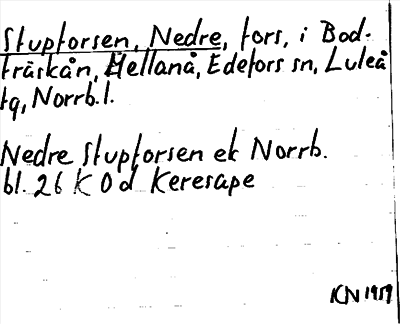 Stupforsen, Nedre, fors, i Bod-
träskån, Mellanå, Edefors sn, Luleå
tg, Norrb. l.
Nedre Stupforsen ek Norrb.
bl. 26 K 0 d Keresape
KN 1959